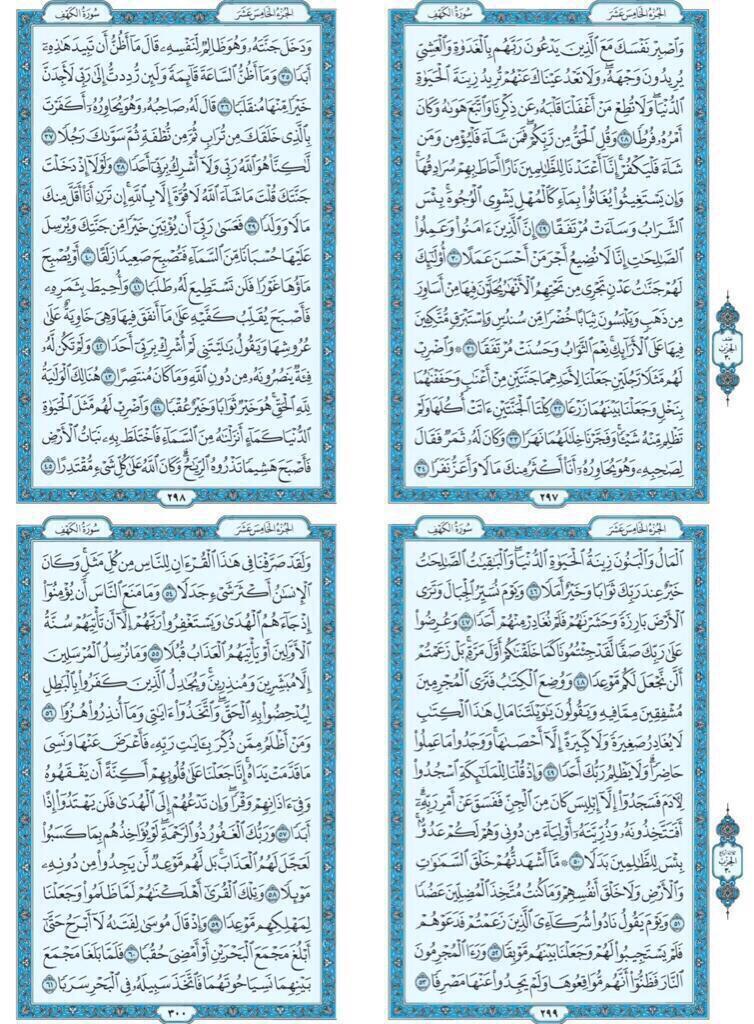 سُورَةُ الكَهْفِ
الجُزْءُ الخَامِسَ عَشَرَ
وَٱصْبِرْ نَفْسَكَ مَعَ ٱلَّذِينَ يَدْعُونَ رَبَّهُم بِٱلْغَدَوٰةِ وَٱلْعَشِيِّ
يُرِيدُونَ وَجْهَهُۥۖ وَلَا تَعْدُ عَيْنَاكَ عَنْهُمْ تُرِيدُ زِينَةَ ٱلْحَيَوٰةِ
ٱلدُّنْيَاۖ وَلَا تُطِعْ مَنْ أَغْفَلْنَا قَلْبَهُۥ عَن ذِكْرِنَا وَٱتَّبَعَ هَوَىٰهُ وَكَانَ
أَمْرُهُۥ فُرُطًا ٢٨ وَقُلِ ٱلْحَقُّ مِن رَّبِّكُمْۖ فَمَن شَآءَ فَلْيُؤْمِن وَمَن
شَآءَ فَلْيَكْفُرْۚ إِنَّآ أَعْتَدْنَا لِلظَّٰلِمِينَ نَارًا أَحَاطَ بِهِمْ سُرَادِقُهَاۚ
وَإِن يَسْتَغِيثُوا۟ يُغَاثُوا۟ بِمَآءٍ كَٱلْمُهْلِ يَشْوِى ٱلْوُجُوهَۚ بِئْسَ
ٱلشَّرَابُ وَسَآءَتْ مُرْتَفَقًا ٢٩ إِنَّ ٱلَّذِينَ ءَامَنُوا۟ وَعَمِلُوا۟
ٱلصَّٰلِحَٰتِ إِنَّا لَا نُضِيعُ أَجْرَ مَنْ أَحْسَنَ عَمَلًا ٣٠ أُو۟لَٰٓئِكَ
لَهُمْ جَنَّٰتُ عَدْنٍ تَجْرِى مِن تَحْتِهِمُ ٱلْأَنْهَٰرُ يُحَلَّوْنَ فِيهَا مِنْ أَسَاوِرَ
مِن ذَهَبٍ وَيَلْبَسُونَ ثِيَابًا خُضْرًا مِّن سُندُسٍ وَإِسْتَبْرَقٍ مُّتَّكِـِٔينَ
فِيهَا عَلَى ٱلْأَرَآئِكِۚ نِعْمَ ٱلثَّوَابُ وَحَسُنَتْ مُرْتَفَقًا ٣١ ۞ وَٱضْرِبْ
لَهُم مَّثَلًا رَّجُلَيْنِ جَعَلْنَا لِأَحَدِهِمَا جَنَّتَيْنِ مِنْ أَعْنَٰبٍ وَحَفَفْنَٰهُمَا
بِنَخْلٍ وَجَعَلْنَا بَيْنَهُمَا زَرْعًا ٣٢ كِلْتَا ٱلْجَنَّتَيْنِ ءَاتَتْ أُكُلَهَا وَلَمْ
تَظْلِم مِّنْهُ شَيْـًٔاۚ وَفَجَّرْنَا خِلَٰلَهُمَا نَهَرًا ٣٣ وَكَانَ لَهُۥ ثَمَرٌ فَقَالَ
لِصَٰحِبِهِۦ وَهُوَ يُحَاوِرُهُۥٓ أَنَا۠ أَكْثَرُ مِنكَ مَالًا وَأَعَزُّ نَفَرًا ٣٤
٢٩٧
نصف
الحزب
٣٠
سُورَةُ الكَهْفِ
الجُزْءُ الخَامِسَ عَشَرَ
وَدَخَلَ جَنَّتَهُۥ وَهُوَ ظَالِمٌ لِّنَفْسِهِۦ قَالَ مَآ أَظُنُّ أَن تَبِيدَ هَٰذِهِۦٓ
أَبَدًا ٣٥ وَمَآ أَظُنُّ ٱلسَّاعَةَ قَآئِمَةً وَلَئِن رُّدِدتُّ إِلَىٰ رَبِّى لَأَجِدَنَّ
خَيْرًا مِّنْهَا مُنقَلَبًا ٣٦ قَالَ لَهُۥ صَاحِبُهُۥ وَهُوَ يُحَاوِرُهُۥٓ أَكَفَرْتَ
بِٱلَّذِى خَلَقَكَ مِن تُرَابٍ ثُمَّ مِن نُّطْفَةٍ ثُمَّ سَوَّىٰكَ رَجُلًا ٣٧
لَّٰكِنَّا۠ هُوَ ٱللَّهُ رَبِّى وَلَآ أُشْرِكُ بِرَبِّىٓ أَحَدًا ٣٨ وَلَوْلَآ إِذْ دَخَلْتَ
جَنَّتَكَ قُلْتَ مَا شَآءَ ٱللَّهُ لَا قُوَّةَ إِلَّا بِٱللَّهِۚ إِن تَرَنِ أَنَا۠ أَقَلَّ مِنكَ
مَالًا وَوَلَدًا ٣٩ فَعَسَىٰ رَبِّىٓ أَن يُؤْتِيَنِ خَيْرًا مِّن جَنَّتِكَ وَيُرْسِلَ
عَلَيْهَا حُسْبَانًا مِّنَ ٱلسَّمَآءِ فَتُصْبِحَ صَعِيدًا زَلَقًا ٤٠ أَوْ يُصْبِحَ
مَآؤُهَا غَوْرًا فَلَن تَسْتَطِيعَ لَهُۥ طَلَبًا ٤١ وَأُحِيطَ بِثَمَرِهِۦ
فَأَصْبَحَ يُقَلِّبُ كَفَّيْهِ عَلَىٰ مَآ أَنفَقَ فِيهَا وَهِىَ خَاوِيَةٌ عَلَىٰ
عُرُوشِهَا وَيَقُولُ يَٰلَيْتَنِى لَمْ أُشْرِكْ بِرَبِّىٓ أَحَدًا ٤٢ وَلَمْ تَكُن لَّهُۥ
فِئَةٌ يَنصُرُونَهُۥ مِن دُونِ ٱللَّهِ وَمَا كَانَ مُنتَصِرًا ٤٣ هُنَالِكَ ٱلْوَلَٰيَةُ
لِلَّهِ ٱلْحَقِّۚ هُوَ خَيْرٌ ثَوَابًا وَخَيْرٌ عُقْبًا ٤٤ وَٱضْرِبْ لَهُم مَّثَلَ ٱلْحَيَوٰةِ
ٱلدُّنْيَا كَمَآءٍ أَنزَلْنَٰهُ مِنَ ٱلسَّمَآءِ فَٱخْتَلَطَ بِهِۦ نَبَاتُ ٱلْأَرْضِ
فَأَصْبَحَ هَشِيمًا تَذْرُوهُ ٱلرِّيَٰحُۗ وَكَانَ ٱللَّهُ عَلَىٰ كُلِّ شَىْءٍ مُّقْتَدِرًا ٤٥
٢٩٨
سُورَةُ الكَهْفِ
الجُزْءُ الخَامِسَ عَشَرَ
ٱلْمَالُ وَٱلْبَنُونَ زِينَةُ ٱلْحَيَوٰةِ ٱلدُّنْيَاۖ وَٱلْبَٰقِيَٰتُ ٱلصَّٰلِحَٰتُ
خَيْرٌ عِندَ رَبِّكَ ثَوَابًا وَخَيْرٌ أَمَلًا ٤٦ وَيَوْمَ نُسَيِّرُ ٱلْجِبَالَ وَتَرَى
ٱلْأَرْضَ بَارِزَةً وَحَشَرْنَٰهُمْ فَلَمْ نُغَادِرْ مِنْهُمْ أَحَدًا ٤٧ وَعُرِضُوا۟
عَلَىٰ رَبِّكَ صَفًّا لَّقَدْ جِئْتُمُونَا كَمَا خَلَقْنَٰكُمْ أَوَّلَ مَرَّةٍۭۚ بَلْ زَعَمْتُمْ
أَلَّن نَّجْعَلَ لَكُم مَّوْعِدًا ٤٨ وَوُضِعَ ٱلْكِتَٰبُ فَتَرَى ٱلْمُجْرِمِينَ
مُشْفِقِينَ مِمَّا فِيهِ وَيَقُولُونَ يَٰوَيْلَتَنَا مَالِ هَٰذَا ٱلْكِتَٰبِ
لَا يُغَادِرُ صَغِيرَةً وَلَا كَبِيرَةً إِلَّآ أَحْصَىٰهَاۚ وَوَجَدُوا۟ مَا عَمِلُوا۟
حَاضِرًاۗ وَلَا يَظْلِمُ رَبُّكَ أَحَدًا ٤٩ وَإِذْ قُلْنَا لِلْمَلَٰٓئِكَةِ ٱسْجُدُوا۟
لِـَٔادَمَ فَسَجَدُوٓا۟ إِلَّآ إِبْلِيسَ كَانَ مِنَ ٱلْجِنِّ فَفَسَقَ عَنْ أَمْرِ رَبِّهِۦٓۗ
أَفَتَتَّخِذُونَهُۥ وَذُرِّيَّتَهُۥٓ أَوْلِيَآءَ مِن دُونِى وَهُمْ لَكُمْ عَدُوٌّۢۚ
بِئْسَ لِلظَّٰلِمِينَ بَدَلًا ٥٠ ۞ مَّآ أَشْهَدتُّهُمْ خَلْقَ ٱلسَّمَٰوَٰتِ
وَٱلْأَرْضِ وَلَا خَلْقَ أَنفُسِهِمْ وَمَا كُنتُ مُتَّخِذَ ٱلْمُضِلِّينَ عَضُدًا
٥١ وَيَوْمَ يَقُولُ نَادُوا۟ شُرَكَآءِىَ ٱلَّذِينَ زَعَمْتُمْ فَدَعَوْهُمْ
فَلَمْ يَسْتَجِيبُوا۟ لَهُمْ وَجَعَلْنَا بَيْنَهُم مَّوْبِقًا ٥٢ وَرَءَا ٱلْمُجْرِمُونَ
ٱلنَّارَ فَظَنُّوٓا۟ أَنَّهُم مُّوَاقِعُوهَا وَلَمْ يَجِدُوا۟ عَنْهَا مَصْرِفًا ٥٣
٢٩٩
ثلاثة أرباع
الحزب
٣٠
سُورَةُ الكَهْفِ
الجُزْءُ الخَامِسَ عَشَرَ
وَلَقَدْ صَرَّفْنَا فِى هَٰذَا ٱلْقُرْءَانِ لِلنَّاسِ مِن كُلِّ مَثَلٍۚ وَكَانَ
ٱلْإِنسَٰنُ أَكْثَرَ شَىْءٍ جَدَلًا ٥٤ وَمَا مَنَعَ ٱلنَّاسَ أَن يُؤْمِنُوٓا۟
إِذْ جَآءَهُمُ ٱلْهُدَىٰ وَيَسْتَغْفِرُوا۟ رَبَّهُمْ إِلَّآ أَن تَأْتِيَهُمْ سُنَّةُ
ٱلْأَوَّلِينَ أَوْ يَأْتِيَهُمُ ٱلْعَذَابُ قُبُلًا ٥٥ وَمَا نُرْسِلُ ٱلْمُرْسَلِينَ
إِلَّا مُبَشِّرِينَ وَمُنذِرِينَۚ وَيُجَٰدِلُ ٱلَّذِينَ كَفَرُوا۟ بِٱلْبَٰطِلِ
لِيُدْحِضُوا۟ بِهِ ٱلْحَقَّۖ وَٱتَّخَذُوٓا۟ ءَايَٰتِى وَمَآ أُنذِرُوا۟ هُزُوًا ٥٦
وَمَنْ أَظْلَمُ مِمَّن ذُكِّرَ بِـَٔايَٰتِ رَبِّهِۦ فَأَعْرَضَ عَنْهَا وَنَسِىَ
مَا قَدَّمَتْ يَدَاهُۚ إِنَّا جَعَلْنَا عَلَىٰ قُلُوبِهِمْ أَكِنَّةً أَن يَفْقَهُوهُ
وَفِىٓ ءَاذَانِهِمْ وَقْرًاۖ وَإِن تَدْعُهُمْ إِلَى ٱلْهُدَىٰ فَلَن يَهْتَدُوٓا۟ إِذًا
أَبَدًا ٥٧ وَرَبُّكَ ٱلْغَفُورُ ذُو ٱلرَّحْمَةِۖ لَوْ يُؤَاخِذُهُم بِمَا كَسَبُوا۟
لَعَجَّلَ لَهُمُ ٱلْعَذَابَۚ بَل لَّهُم مَّوْعِدٌ لَّن يَجِدُوا۟ مِن دُونِهِۦ
مَوْئِلًا ٥٨ وَتِلْكَ ٱلْقُرَىٰٓ أَهْلَكْنَٰهُمْ لَمَّا ظَلَمُوا۟ وَجَعَلْنَا
لِمَهْلِكِهِم مَّوْعِدًا ٥٩ وَإِذْ قَالَ مُوسَىٰ لِفَتَىٰهُ لَآ أَبْرَحُ حَتَّىٰٓ
أَبْلُغَ مَجْمَعَ ٱلْبَحْرَيْنِ أَوْ أَمْضِىَ حُقُبًا ٦٠ فَلَمَّا بَلَغَا مَجْمَعَ
بَيْنِهِمَا نَسِيَا حُوتَهُمَا فَٱتَّخَذَ سَبِيلَهُۥ فِى ٱلْبَحْرِ سَرَبًا ٦١
٣٠٠